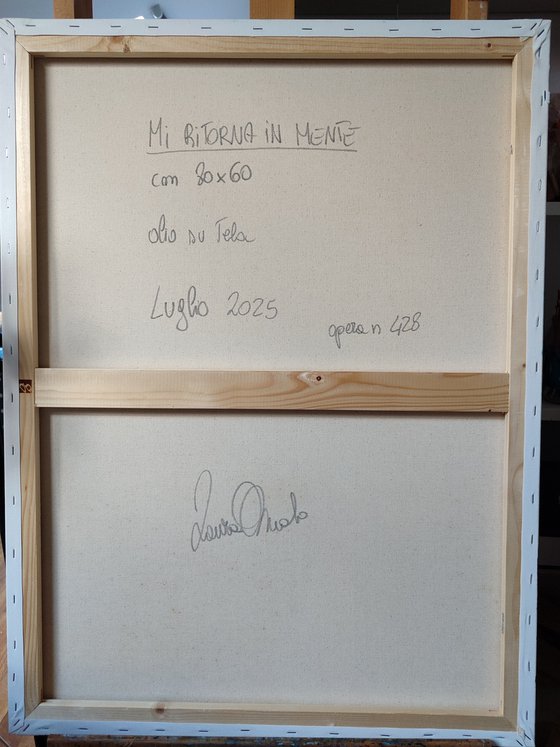 Mi RiTORNA iN MENTE
cm 80x60
olio su Tela
Luglio 2025
opera n 428
Laura